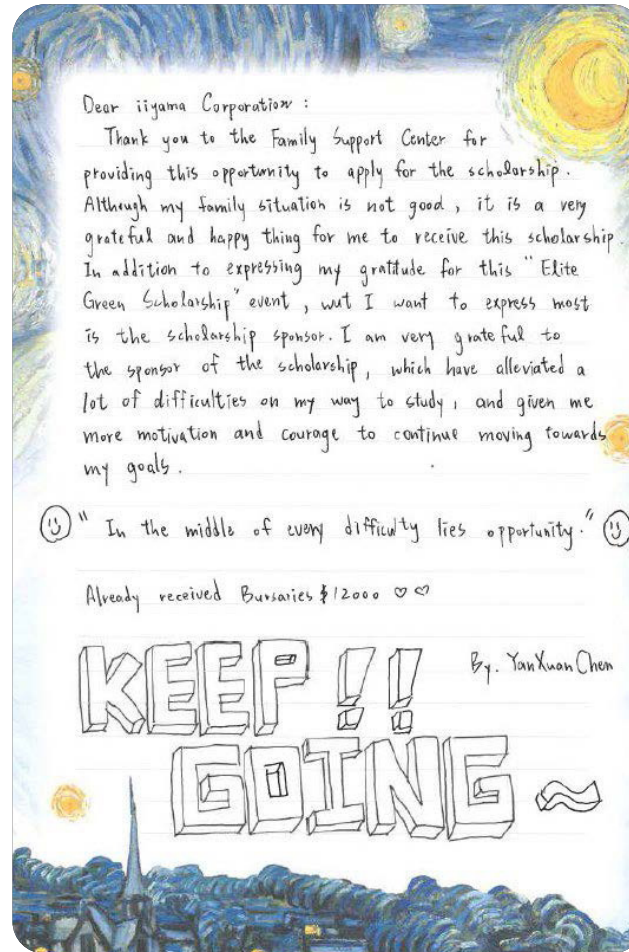 Dear iiyama Corporation :
Thank you to the Family Support Center for
providing this opportunity to apply for the scholarship.
Although my family situation is not good, it is a very
grateful and happy thing for me to receive this scholarship.
In addition to expressing my gratitude for this "Elite
Green Scholarship" event, wut I want to express most
is the scholarship sponsor. I am very grateful to
the sponsor of the scholarship, which have alleviated a
lot of difficulties on my way to study, and given me
more motivation and courage to continue moving towards
my goals.
"In the middle of every difficulty lies opportunity."
Already received Bursaries $12000 ♡ ♡
KEEP!!
By. YanXuan Chen
GOING~